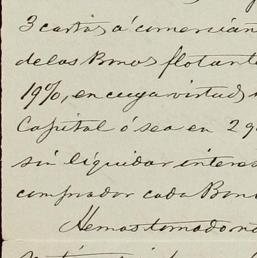 3 cartas á comercian
de los Bonos flotant
19%, en cuya virtud
Capital ó sea en 2 9
sin liquidar interes
comprador cada Bon
Hemos tomado no